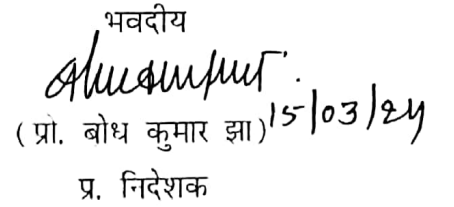 भवदीय
(प्रो. बोध कुमार झा) 15/03/24
प्र. निदेशक